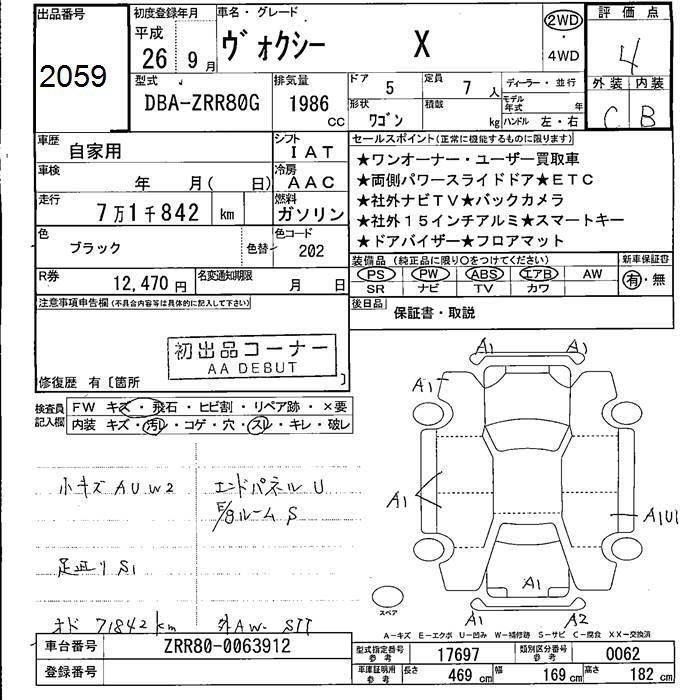 出品番号
2059
初度登録年月
平成
26年9月
車名・グレード
ヴォクシー X
2WD
・
4WD
評価点
4
外装 内装
C B
型式
DBA-ZRR80G
排気量
1986
CC
ドア 5
定員 7人
ディーラー・並行
形状
ワゴン
積載 kg
モデル年式 年
ハンドル 左・右
車歴
自家用
シフト
IAT
車検
年 月( 日)
冷房
AAC
走行
7万1千842 km
燃料
ガソリン
色
ブラック
色替
色コード
202
R券
12,470円
名変通知期限
月 日
セールスポイント(正常に機能するものに限ります)
★ワンオーナー・ユーザー買取車
★両側パワースライドドア★ETC
★社外ナビTV★バックカメラ
★社外15インチアルミ★スマートキー
★ドアバイザー★フロアマット
装備品(純正品に限り○をつけてください)
新車保証書
PS PW ABS エアB AW
有・無
SR ナビ TV カワ
後日品
保証書・取説
注意事項申告欄(不具合内容等は具体的に記入して下さい)
初出品コーナー
AA DEBUT
修復歴 有〔箇所 〕
検査員記入欄
FW キズ・飛石・ヒビ割・リペア跡・×要
内装 キズ・汚レ・コゲ・穴・スレ・キレ・破レ
小キズ AUW2
エンドパネル U
E/gルーム S
足廻り S1
オド 71842km
外AW STT
A1 A1
A1
A1
A1U1
A1
A1 A2
スペア
A-キズ E-エクボ U-凹み W-補修跡 S-サビ C-腐食 XX-交換済
車台番号
ZRR80-0063912
登録番号
型式指定番号
参考
17697
類別区分番号
参考
0062
車庫証明用
参考
長さ 469cm
幅 169cm
高さ 182cm